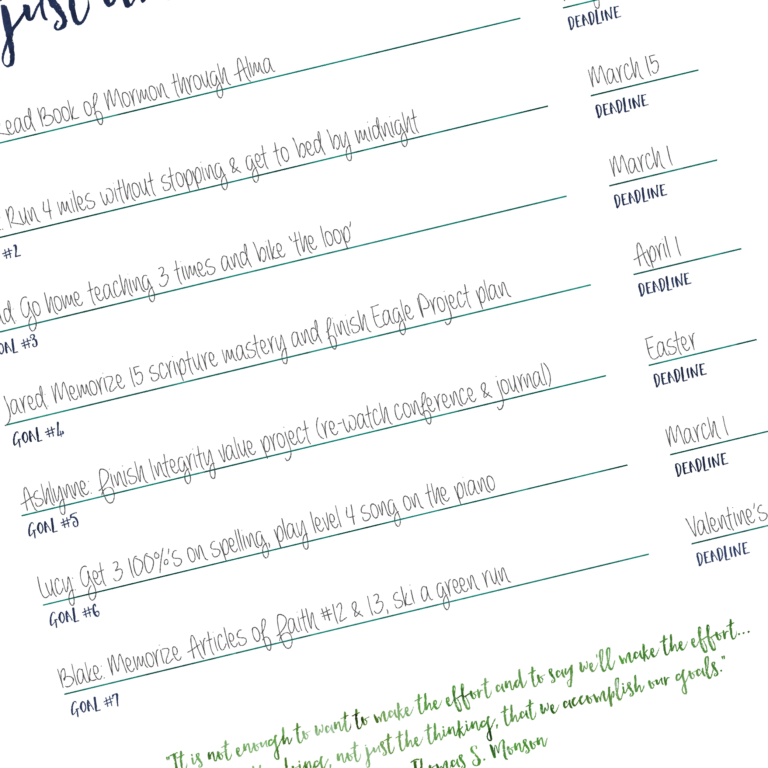 just
Read Book of Mormon through Alma
DEADLINE
Run 4 miles without stopping & get to bed by midnight
March 15
#2
DEADLINE
Go home teaching 3 times and bike 'the loop'
March 1
#3
DEADLINE
Jared Memorize 15 scripture mastery and finish Eagle Project plan
April 1
GOAL #4
DEADLINE
Ashlynne: finish Integrity value project (re-watch conference & journal)
Easter
GOAL #5
DEADLINE
Lucy: Get 3 100%'s on spelling, play level 4 song on the piano
March 1
GOAL #6
DEADLINE
Blake: Memorize Articles of faith #12 & 13, ski a green run
Valentine's
GOAL #7
DEADLINE
"It is not enough to want to make the effort and to say we'll make the effort...
not just the thinking, that we accomplish our goals."
Thomas S. Monson